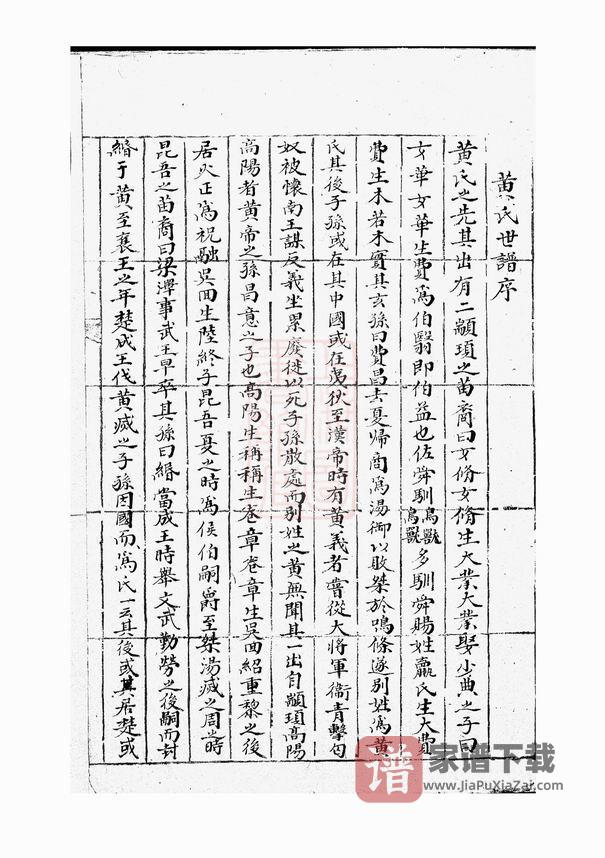 黄氏世譜序
黄氏之先其出有二顓頊之苗裔曰女脩女脩生大業大業娶少典之子曰
女華女華生費爲伯翳即伯益也佐舜馴鳥獸鳥獸多馴舜賜姓嬴氏生大費
費生木若木實其玄孫曰費昌去夏歸商爲湯御以敗桀於鳴條遂別姓爲黄
氏其後子孫或在其中國或在夷狄至漢帝時有黄義者嘗從大將軍衛青擊匈
奴被懷南王謀反義坐累廢徙以死子孫散處而别姓之黄無聞其一出自顓頊高陽
高陽者黄帝之孫昌意之子也高陽生稱稱生卷章卷章生吳回紹重黎之後
居火正爲祝融吳回生陸終子昆吾夏之時爲侯伯嗣爵至桀湯滅之周之時
昆吾之苗裔曰梁澤事武王早卒其孫曰緡當成王時舉文武勤勞之後嗣而封
緡于黄至襄王之年楚成王伐黄滅之子孫因國而爲氏一云其後或其居楚或
家谱下载
www.JiaPuXiaZai.com
谱